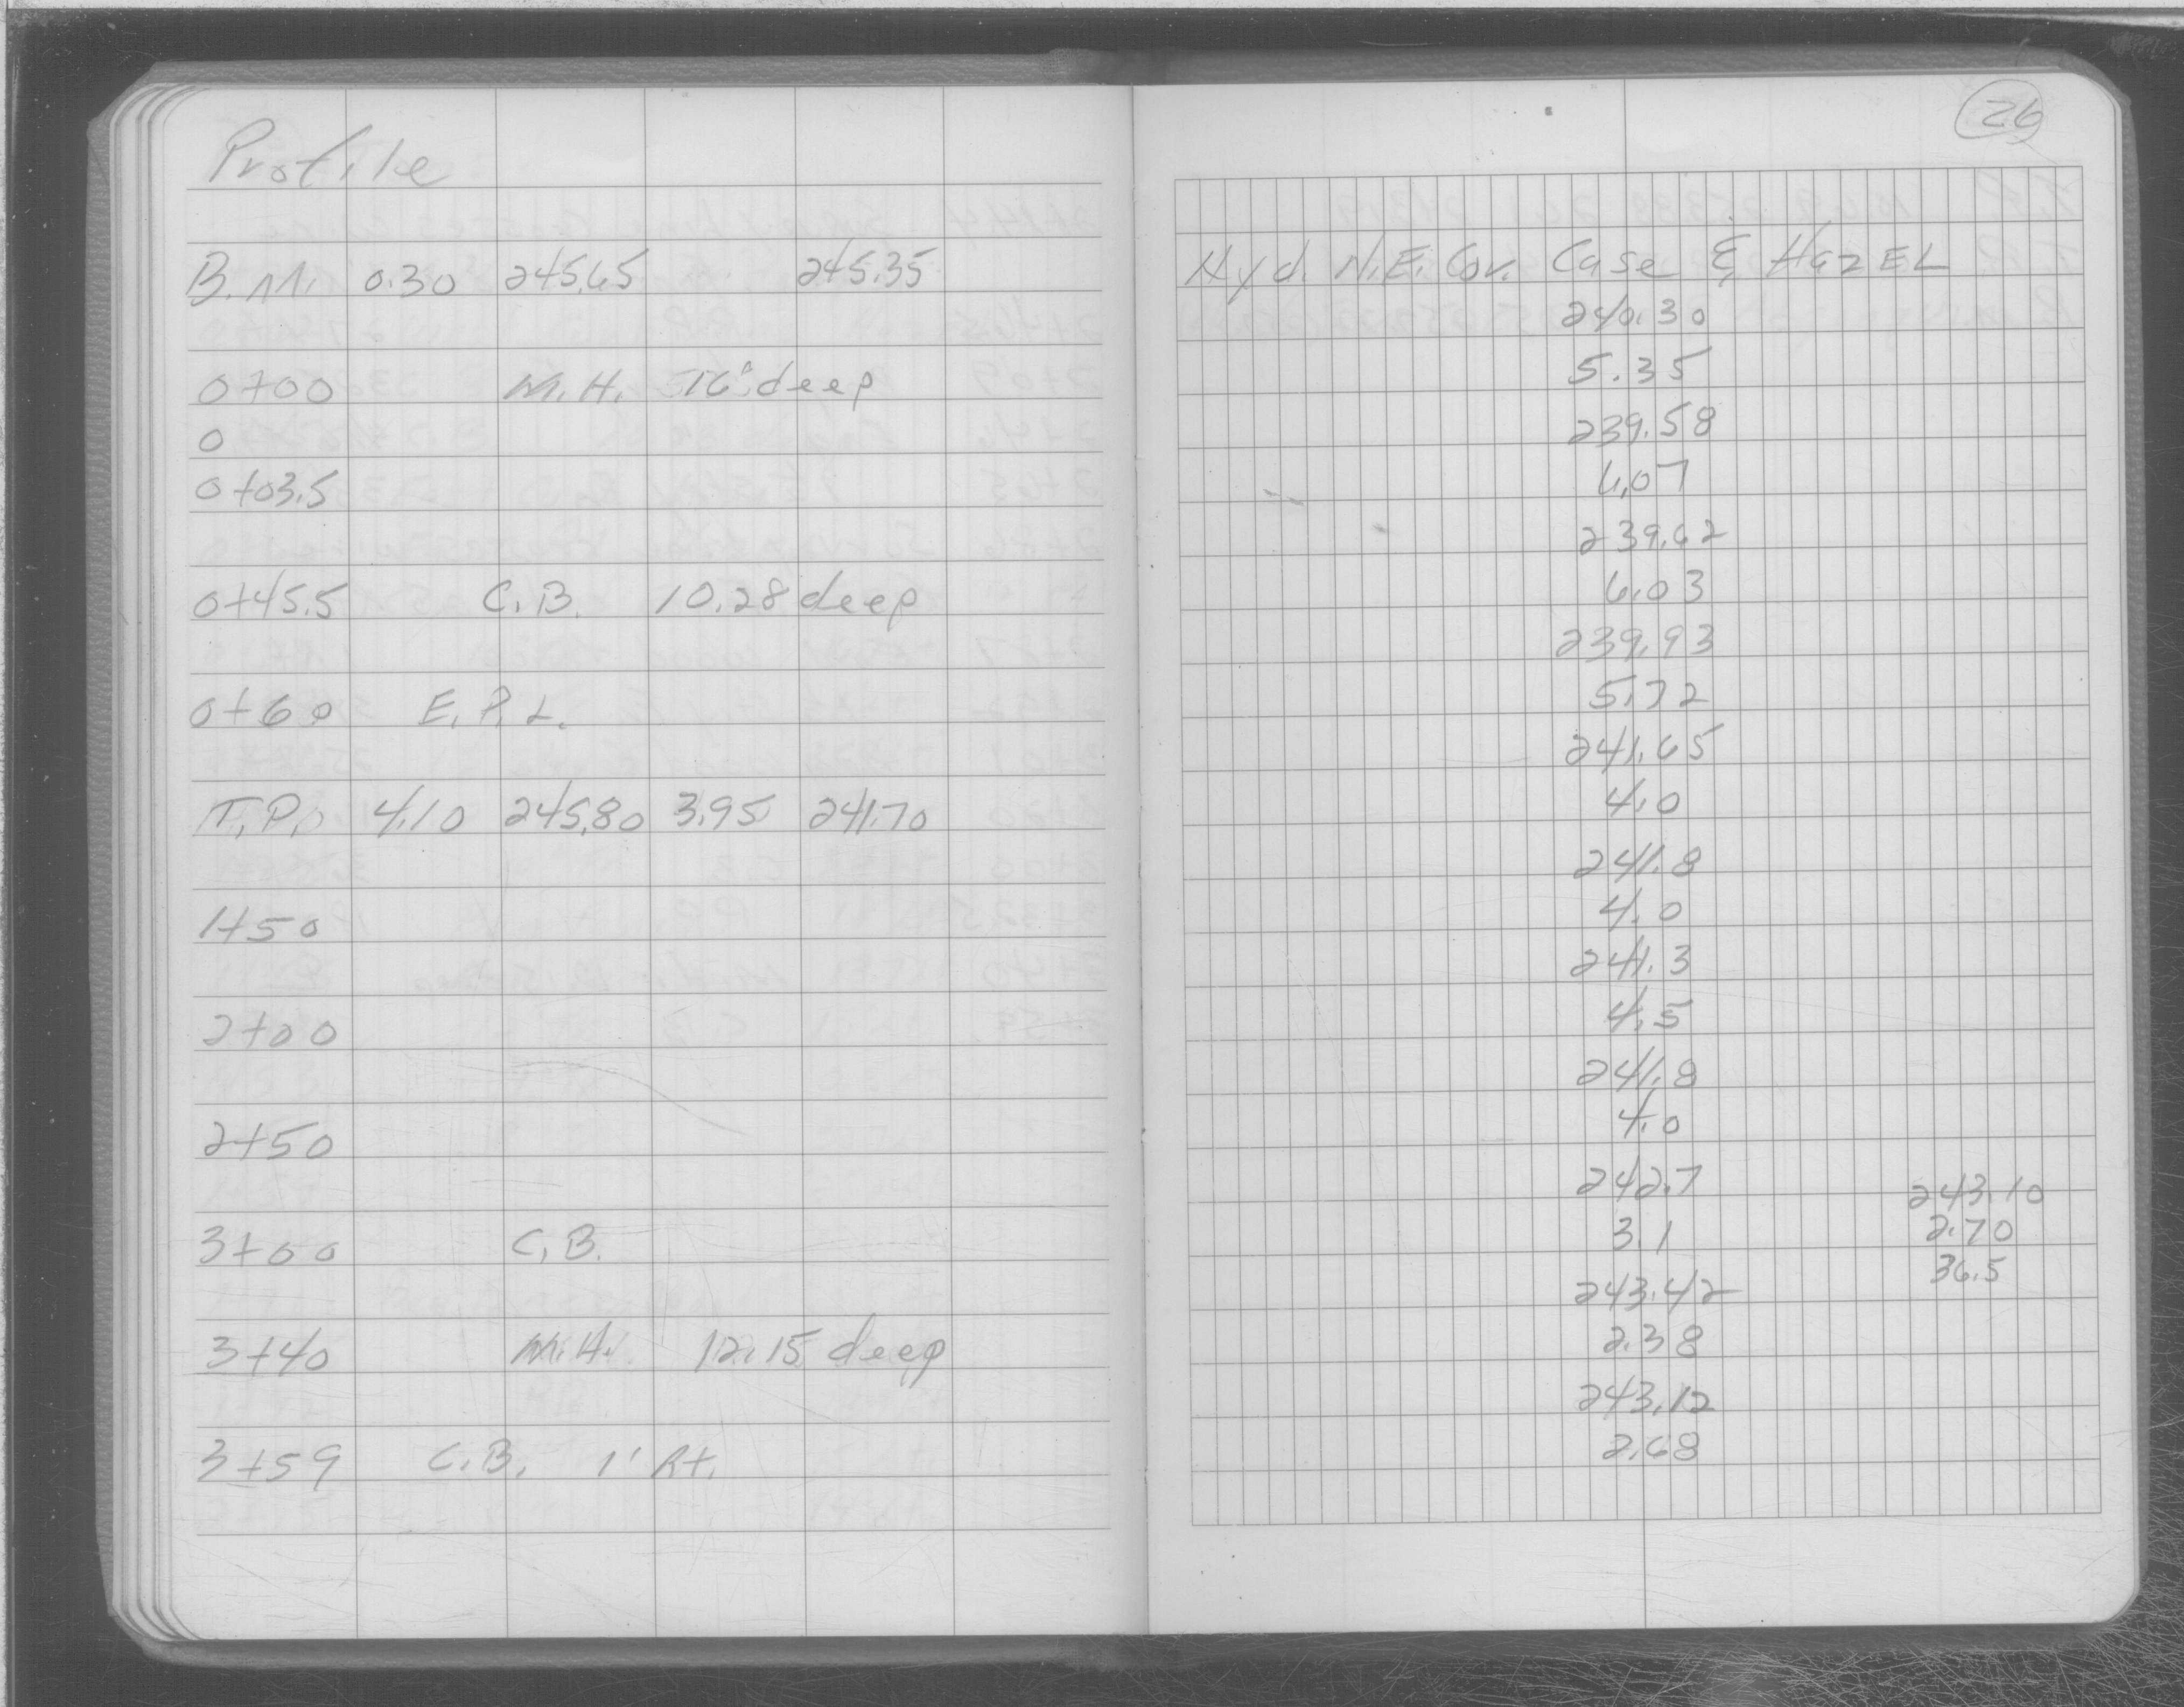 Profile
B.M. 0.30 245.65 245.35
0+00 M.H. deep
0
0+03.5
0+45.5 C.B. 10.28 deep
0+60 E.P.L.
T.P. 4.10 245.80 3.95 241.70
1+50
2+00
2+50
3+00 C.B.
3+40 M.H. 12.15 deep
3+59 C.B. 1' Rt.
26
Hyd. N.E. Cor. Case & HAZEL
240.30
5.35
239.58
6.07
239.62
6.03
239.93
5.72
241.65
4.0
241.8
4.0
241.3
4.5
241.8
4.0
242.7 243.10
3.1 2.70
36.5
243.42
2.38
243.12
2.68